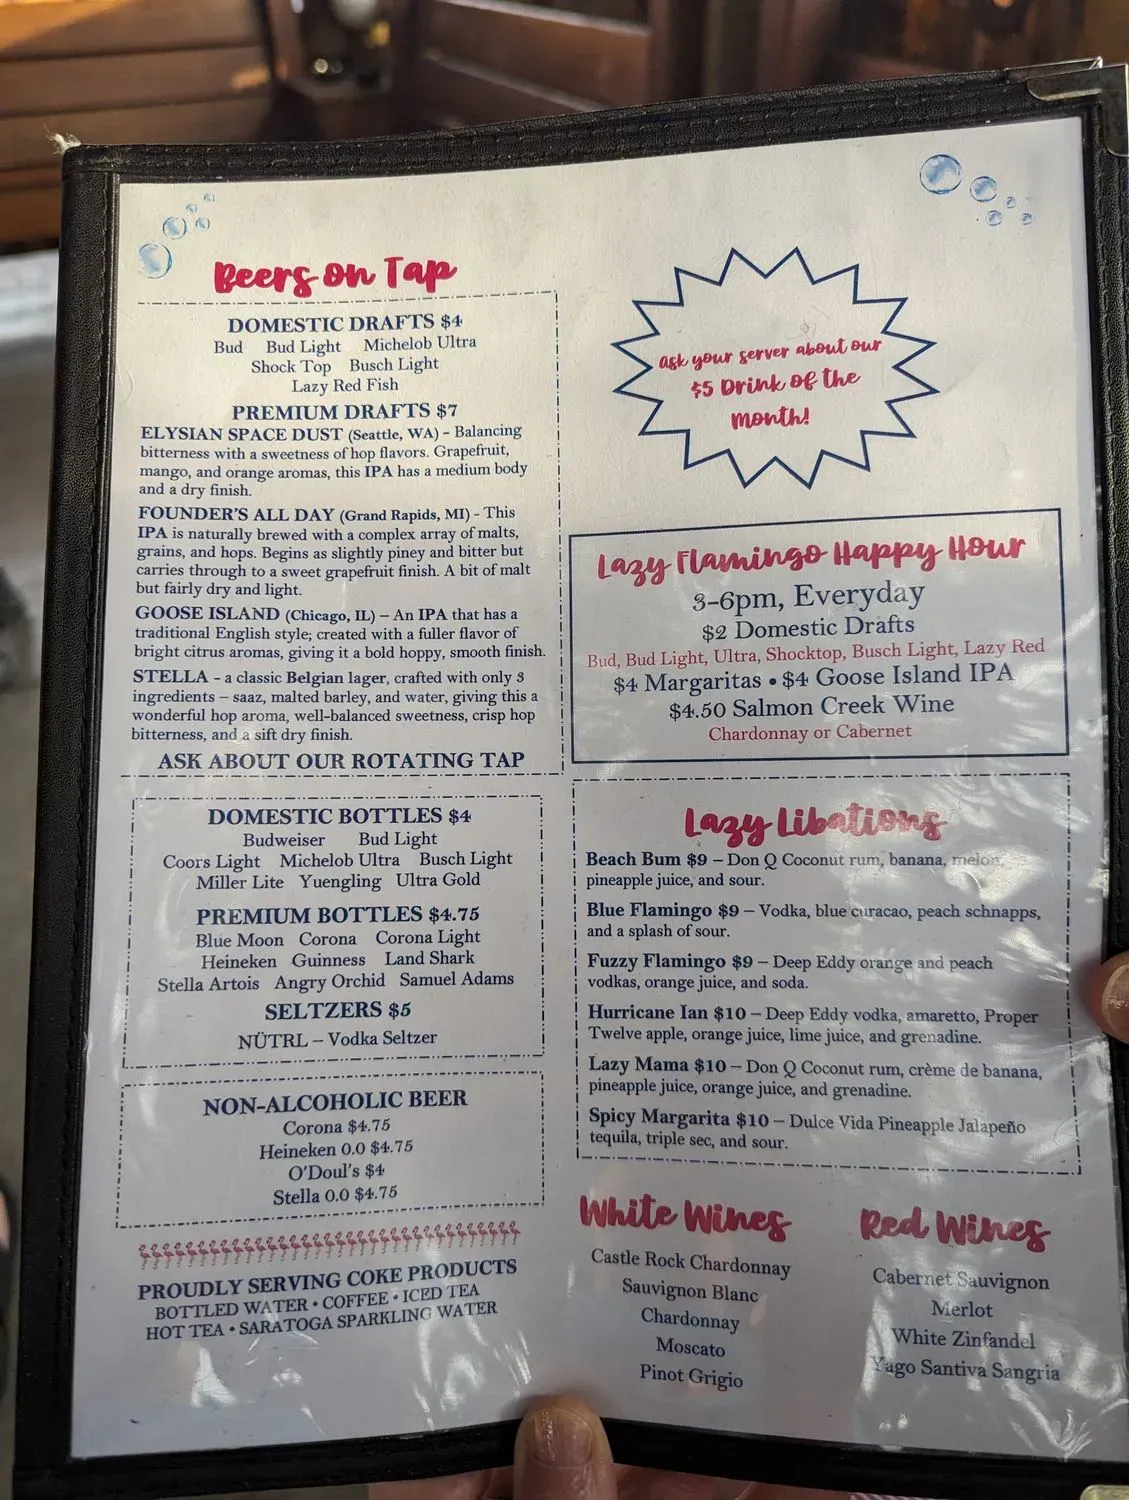 Beers on Tap
DOMESTIC DRAFTS $4
Bud Bud Light Michelob Ultra
Shock Top Busch Light
Lazy Red Fish
PREMIUM DRAFTS $7
ELYSIAN SPACE DUST (Seattle, WA) - Balancing
bitterness with a sweetness of hop flavors. Grapefruit,
mango, and orange aromas, this IPA has a medium body
and a dry finish.
FOUNDER'S ALL DAY (Grand Rapids, MI) - This
IPA is naturally brewed with a complex array of malts,
grains, and hops. Begins as slightly piney and bitter but
carries through to a sweet grapefruit finish. A bit of malt
but fairly dry and light.
GOOSE ISLAND (Chicago, IL) – An IPA that has a
traditional English style; created with a fuller flavor of
bright citrus aromas, giving it a bold hoppy, smooth finish.
STELLA - a classic Belgian lager, crafted with only 3
ingredients – saaz, malted barley, and water, giving this a
wonderful hop aroma, well-balanced sweetness, crisp hop
bitterness, and a sift dry finish.
ASK ABOUT OUR ROTATING TAP
DOMESTIC BOTTLES $4
Budweiser Bud Light
Coors Light Michelob Ultra Busch Light
Miller Lite Yuengling Ultra Gold
PREMIUM BOTTLES $4.75
Blue Moon Corona Corona Light
Heineken Guinness Land Shark
Stella Artois Angry Orchid Samuel Adams
SELTZERS $5
NÜTRL – Vodka Seltzer
NON-ALCOHOLIC BEER
Corona $4.75
Heineken 0.0 $4.75
O'Doul's $4
Stella 0.0 $4.75
PROUDLY SERVING COKE PRODUCTS
BOTTLED WATER • COFFEE • ICED TEA
HOT TEA • SARATOGA SPARKLING WATER
Ask your server about our
$5 Drink of the
month!
Lazy Flamingo Happy Hour
3-6pm, Everyday
$2 Domestic Drafts
Bud, Bud Light, Ultra, Shocktop, Busch Light, Lazy Red
$4 Margaritas • $4 Goose Island IPA
$4.50 Salmon Creek Wine
Chardonnay or Cabernet
Lazy Libations
Beach Bum $9 – Don Q Coconut rum, banana, melon,
pineapple juice, and sour.
Blue Flamingo $9 – Vodka, blue curacao, peach schnapps,
and a splash of sour.
Fuzzy Flamingo $9 – Deep Eddy orange and peach
vodkas, orange juice, and soda.
Hurricane Ian $10 – Deep Eddy vodka, amaretto, Proper
Twelve apple, orange juice, lime juice, and grenadine.
Lazy Mama $10 – Don Q Coconut rum, crème de banana,
pineapple juice, orange juice, and grenadine.
Spicy Margarita $10 – Dulce Vida Pineapple Jalapeño
tequila, triple sec, and sour.
White Wines
Castle Rock Chardonnay
Sauvignon Blanc
Chardonnay
Moscato
Pinot Grigio
Red Wines
Cabernet Sauvignon
Merlot
White Zinfandel
Yago Santiva Sangria